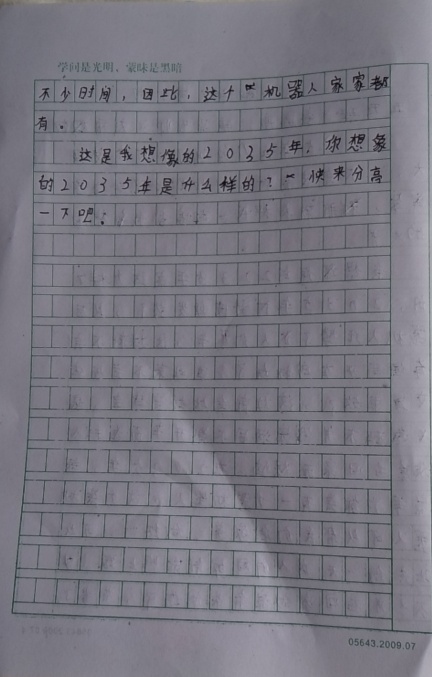 学问是光明，蒙昧是黑暗
不少时间，因此，这个“机器人家家都
有。
这是我想像的2035年，你想象
的2035年是什么样的？“快来分享
一下吧！
05643.2009.07